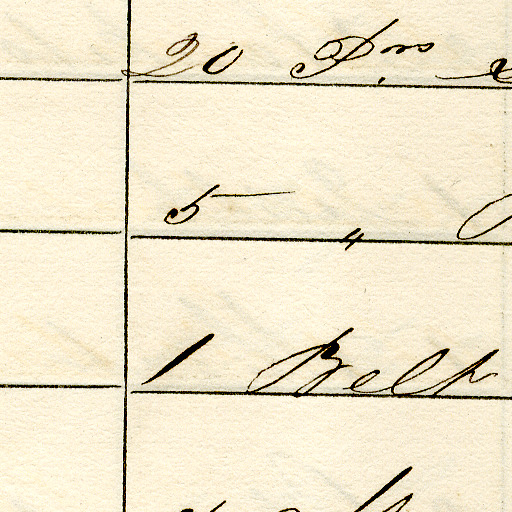 20 Prs
5 "
1 Belt